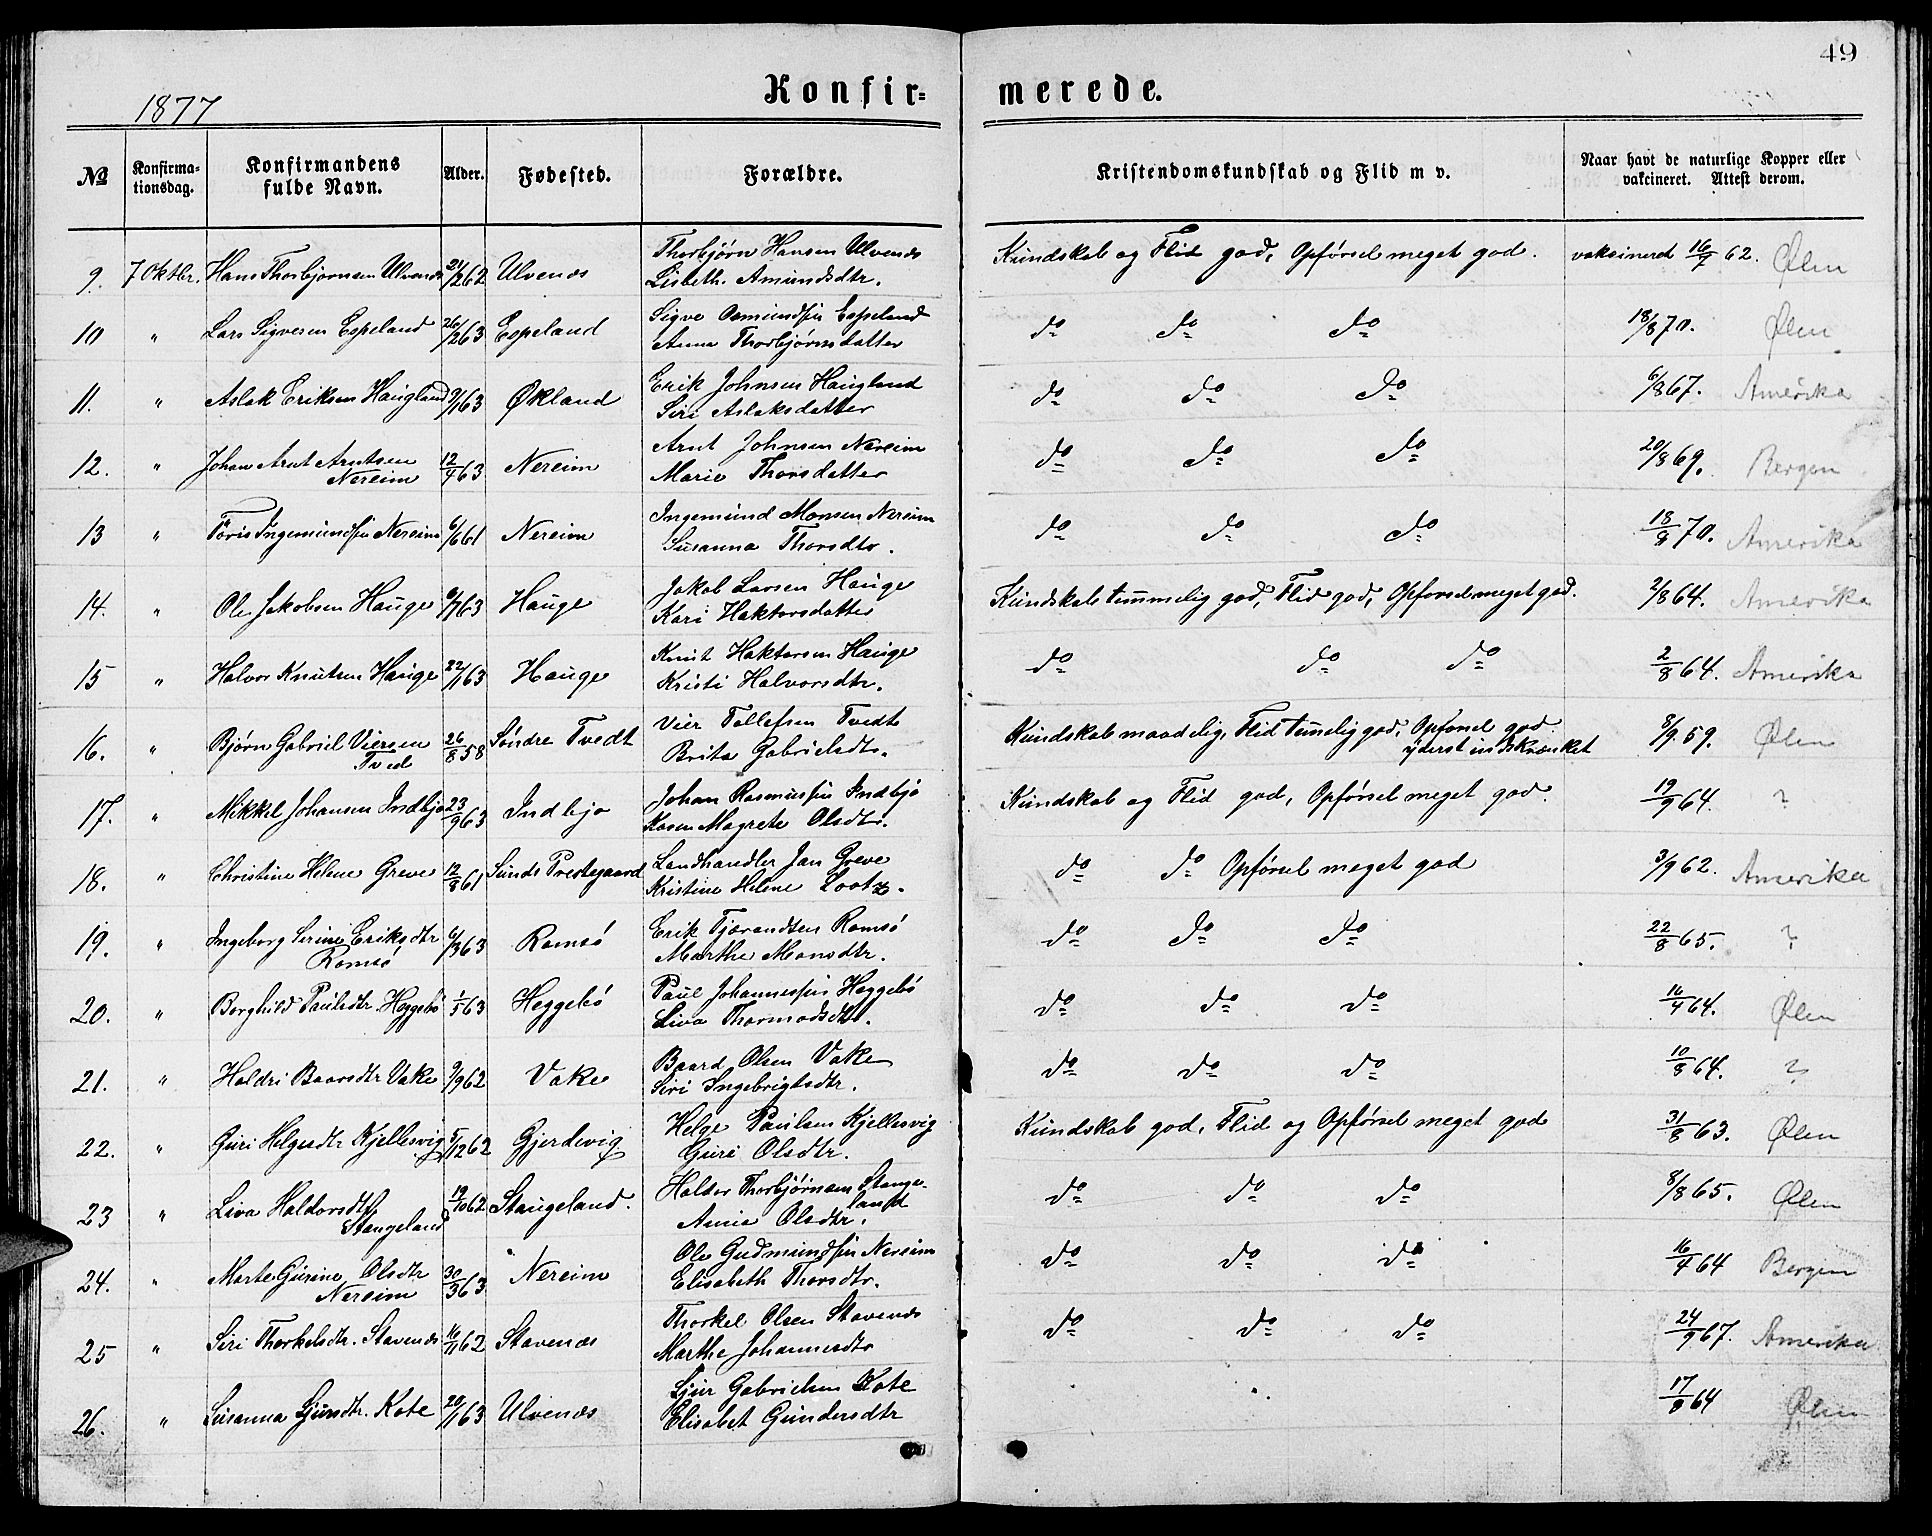 49
1877
Konfir= merede.
№ Konfirma-tionsdag. Konfirmandens fulde Navn. Alder. Fødested. Forældre. Kristendomskundskab og Flid m v. Naar havt de naturlige Kopper eller vakcineret. Attest derom.
Thorbjørn Hansen Ulvenes Kundskab og Flid god, Opførsel meget god. vaksineret 16/7 62. Ølen
9. 7 Oktbr. Hans Thorbjørnsen Ulvenes 21/2 62 Ulvenes Lisbeth Amundsdtr.
Sigve Osmundsen Espeland
10 " Lars Sigvesen Espeland 26/2 63 Espeland do do do 18/8 70. Ølen
Anna Thorbjørnsdatter
Erik Johnsen Haugland
11. " Aslak Eriksen Haugland 9/1 63 Økland do do do 6/8 67. Amerika
Siri Aslaksdatter
Arnt Johnsen Nereim
12. " Johan Arnt Arntsen Nereim 12/4 63 Nereim do do do 20/8 69. Bergen
Marie Thorsdatter
Ingemund Monsen Nereim
13 " Ingemundsen Nereim 6/6 61 Nereim do do do 18/8 70. Amerika
Susanna Thorsdtr.
Jakob Larsen Hauge
14. " Ole Jakobsen Hauge 63 Hauge Kundskab temmelig god, Flid god, Opførsel meget god. 2/8 64. Amerika
Kari Haktorsdatter
Knut Haktorsen Hauge
15 " Halvor Knutsen Hauge 22/1 63 Hauge do do do 2/8 64. Amerika
Kristi Halvorsdtr.
Vier Tollefsen Tvedt
16. " Bjørn Gabriel Viersen Tved 26/8 58 Søndre Tvedt Kundskab maadelig, Flid temelig god, Opførsel god 8/9 59. Ølen
Brita Gabrielsdtr. yderst indskrænket
Johan Rasmussen Indbjo
17. " Mikkel Johansen Indbjo 23/9 63 Indbjo Kundskab og Flid god, Opførsel meget god. 19/9 64. ?
Karen Magrete Olsdtr.
Landhandler Jan Greve
18. " Christine Helene Greve 12/8 61 Sunds Prestegaard do do Opførsel meget god 3/9 62. Amerika
Kristine Helene Lootz.
Erik Tjerandsen Romsø
19. " Ingeborg Serine Eriksdtr Romsø 6/3 63 Romsø do do do 22/8 65. ?
Marthe Monsdtr.
Paul Johannessen Heggebø
20. " Borghild Paulsdtr. Heggebø 1/5 63 Heggebø do do do 16/4 64. Ølen
Liva Thormodsdtr.
Baard Olsen Vake
21. " Haldri Baarsdtr Vake 9/9 62 Vake do do do 10/8 64. ?
Siri Ingebrigtsdtr.
Helge Paulsen Kjellesvig
22. " Guri Helgesdtr Kjellesvig 5/12 62 Gjerdevig Kundskab god, Flid og Opførsel meget god 31/8 63. Ølen
Guri Olsdtr.
Haldor Thorbjørnsen Stangeland
23 " Liva Haldorsdtr Stangeland 19/10 62 Stangeland. do do do 8/8 65. Ølen
Anna Olsdtr.
Ole Gudmundsen Nereim
24. " Marte Gurine Olsdtr Nereim 30/3 63 Nereim do do do 16/4 64 Bergen
Elisabeth Thorsdtr.
Thorkel Olsen Stavenes
25 " Siri Thorkelsdtr. Stavenes 16/11 62 Stavenes do do do 24/9 67. Amerika
Marthe Johannesdtr
Sjur Gabrielsen Kate
26. " Susanna Sjursdtr. Kate 20/1 63 Ulvenes " 17/8 64 Ølen
Elisabet Gundersdtr